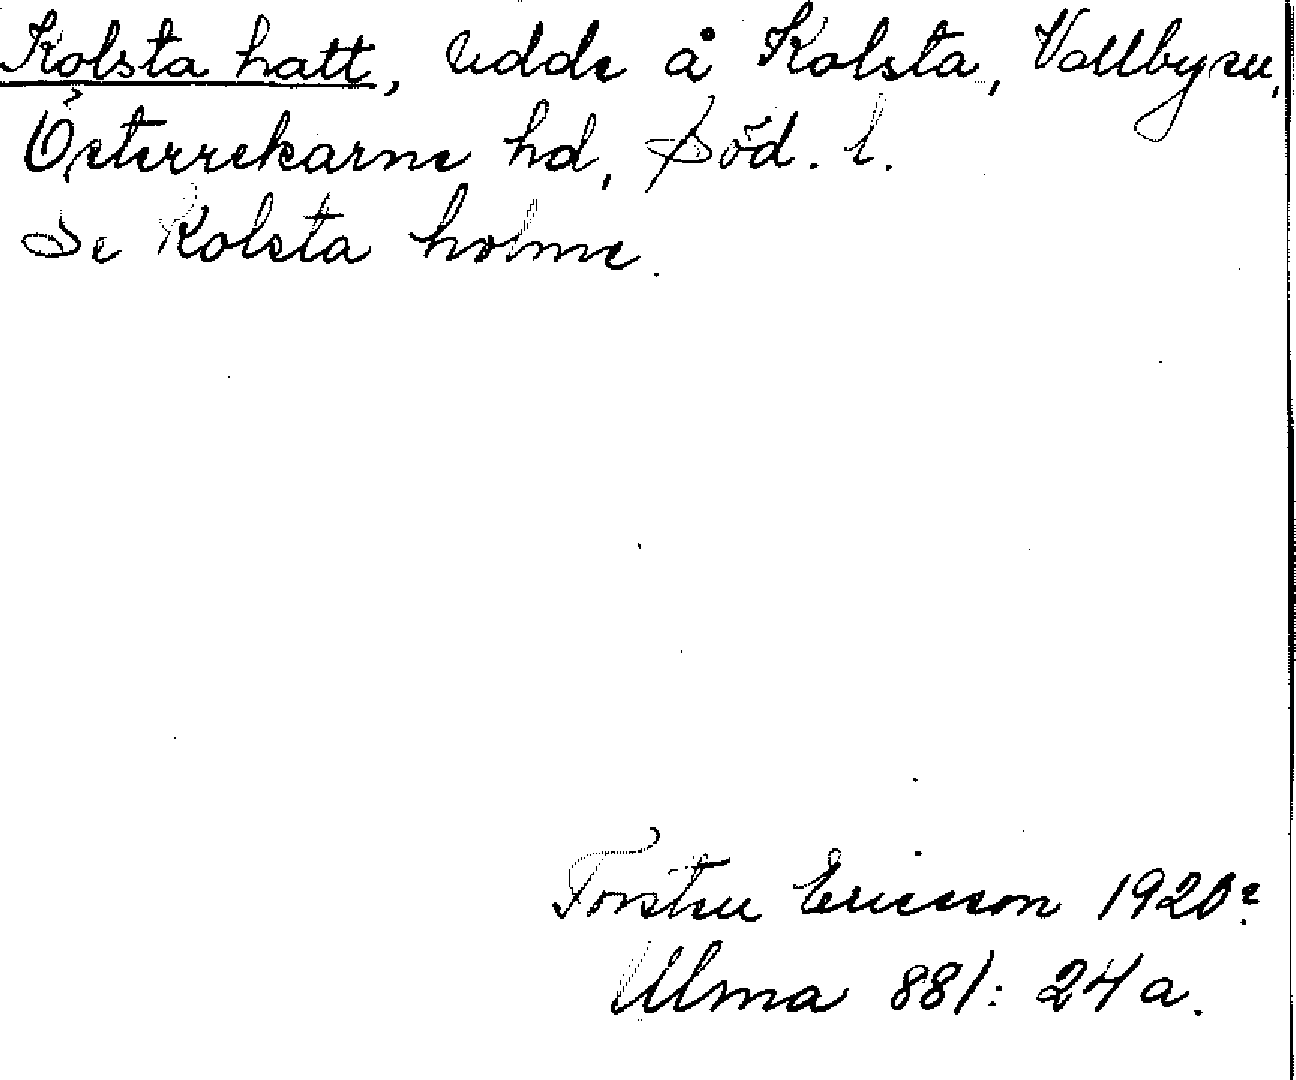 Kolsta hatt, udde å Kolsta, Vallby sn,
Österrekarne hd, Söd. l.
Se Kolsta holme.
Torsten Ericsson 1920?
Ulma 881: 24 a.